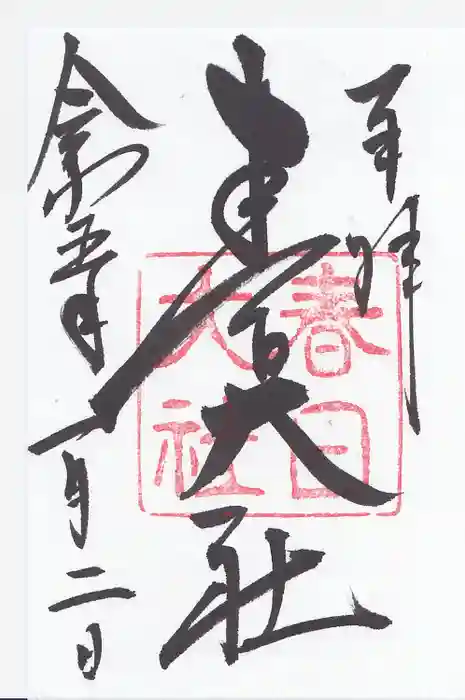 奉拝
春日大社
春日
大社
令和五年一月二日